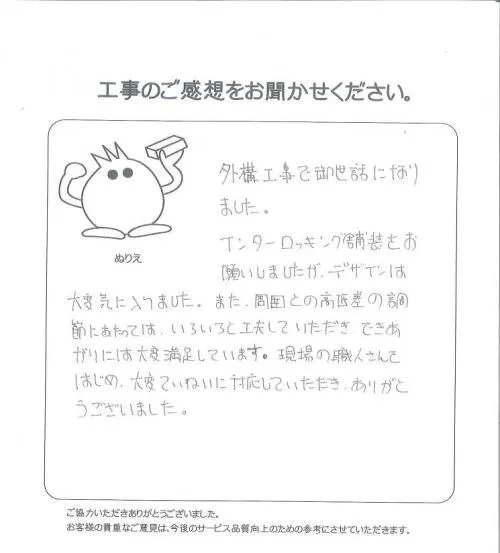 工事のご感想をお聞かせください。
外構工事で御世話になり
ました。
インターロッキング舗装をお
願いしましたが、デザインは
ぬりえ
大変気に入りました。また、周囲との高低差の調
節にあたっては、いろいろと工夫していただき、できあ
がりには大変満足しています。現場の職人さんを
はじめ、大変ていねいに対応していただき、ありがと
うございました。
ご協力いただきありがとうございました。
お客様の貴重なご意見は、今後のサービス品質向上のための参考にさせていただきます。